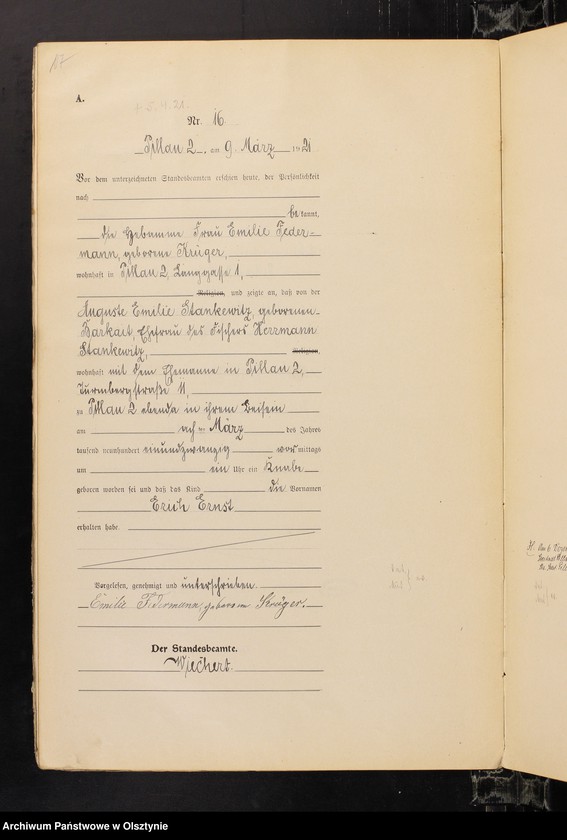 A.
Nr. 16
Pillau 2. am 9. März 1921
Vor dem unterzeichneten Standesbeamten erschien heute, der Persönlichkeit
nach
bekannt,
die Hebamme Frau Emilie Feder-
mann, geborene Krüger,
wohnhaft in Pillau 2, Langgasse 1,
Religion, und zeigte an, daß von der
Auguste Emilie Stankewitz, geborenen
Barkait, Ehefrau des Fischers Herrmann
Stankewitz, Religion,
wohnhaft mit dem Ehemanne in Pillau 2,
Turmbergstraße 11,
zu Pillau 2 ebenda in ihrem Beisein
am acht en März des Jahres
tausend neunhundert einundzwanzig vormittags
um ein Uhr ein Knabe
geboren worden sei und daß das Kind die Vornamen
Erich Ernst
erhalten habe.
Vorgelesen, genehmigt und unterschrieben.
Emilie Federmann, geborene Krüger.
Der Standesbeamte.
Wiechert.
Archiwum Państwowe w Olsztynie